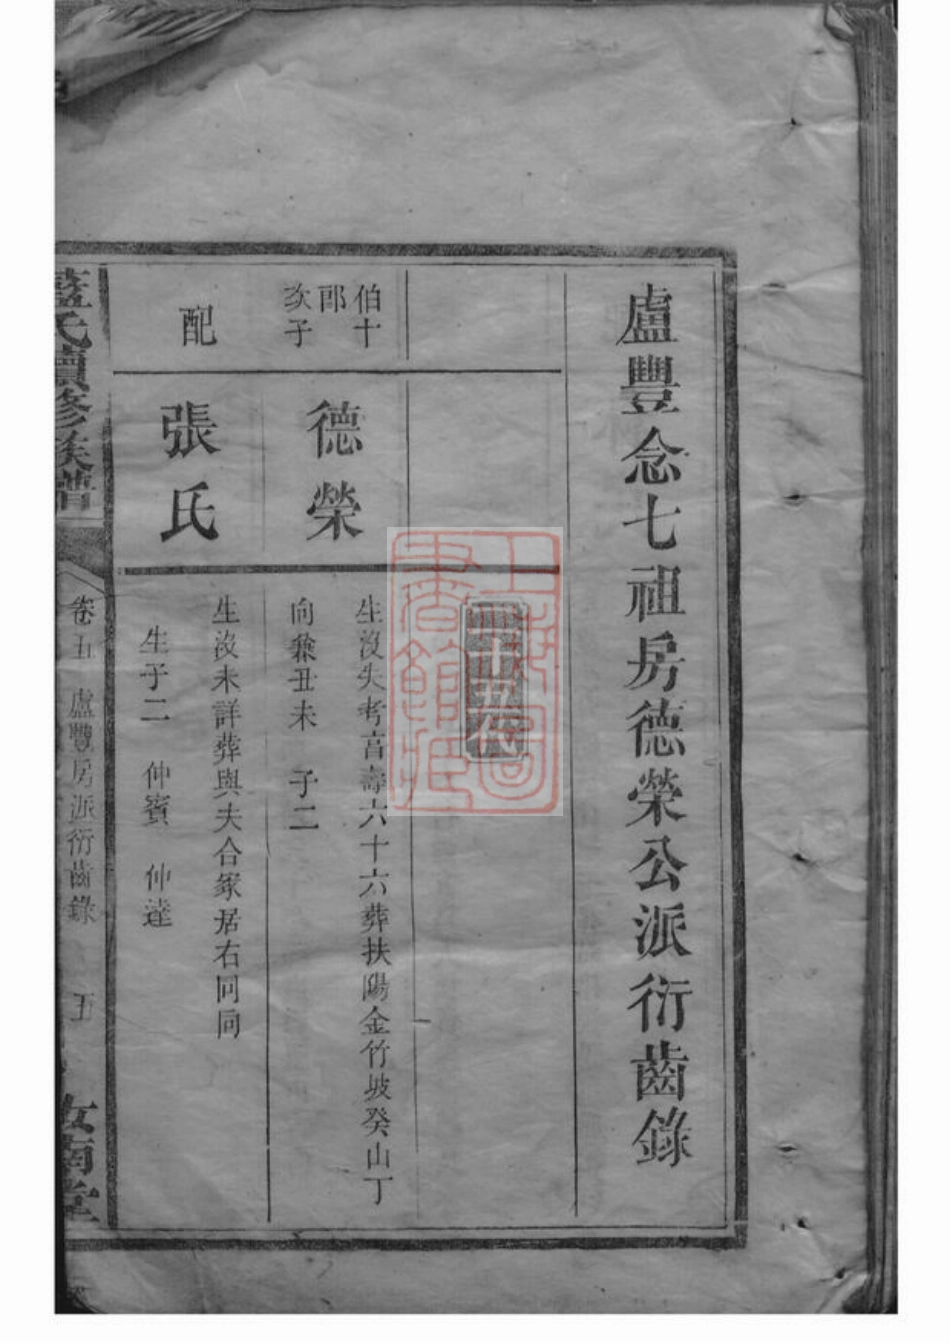 盧豐念七祖房德榮公派衍齒錄
伯十
郎
次子
德榮
生沒失考言壽六十六葬扶陽金竹坡癸山丁
向兼丑未 子二
配
張氏
生沒未詳葬與夫合冢居右同向
生子二 仲賓 仲達
藍氏續修族譜
卷五 盧豐房派衍齒錄 五
汝南堂
上海圖書館藏